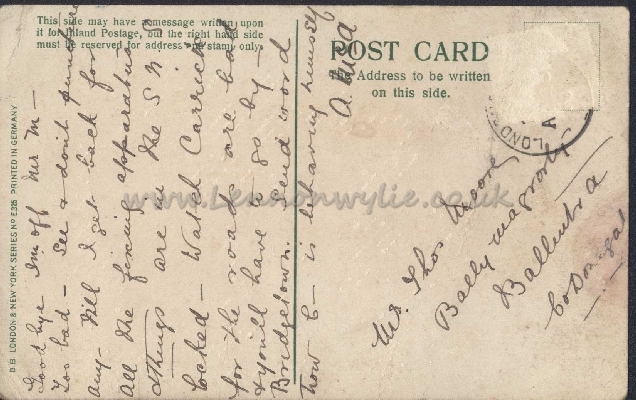 This side may have a message written upon
it for Inland Postage, but the right hand side
must be reserved for address and stamp only.
POST CARD
The Address to be written
on this side.
B.B. LONDON & NEW YORK SERIES No E325 PRINTED IN GERMANY
LONDON
A
www.Lennonwylie.co.uk
Good bye I'm off Mr M —
Too bad — See & don't puncture
any till I get back for
all the fixing apparatus
& things are in the S N R
locked — Watch Carrick
for the roads are bad
& you'll have to go by —
Bridgetown. Send word
how C — is behaving himself
A. 
Mr. Thos Moore
Ballymagrorty
Ballintra
Co Donegal